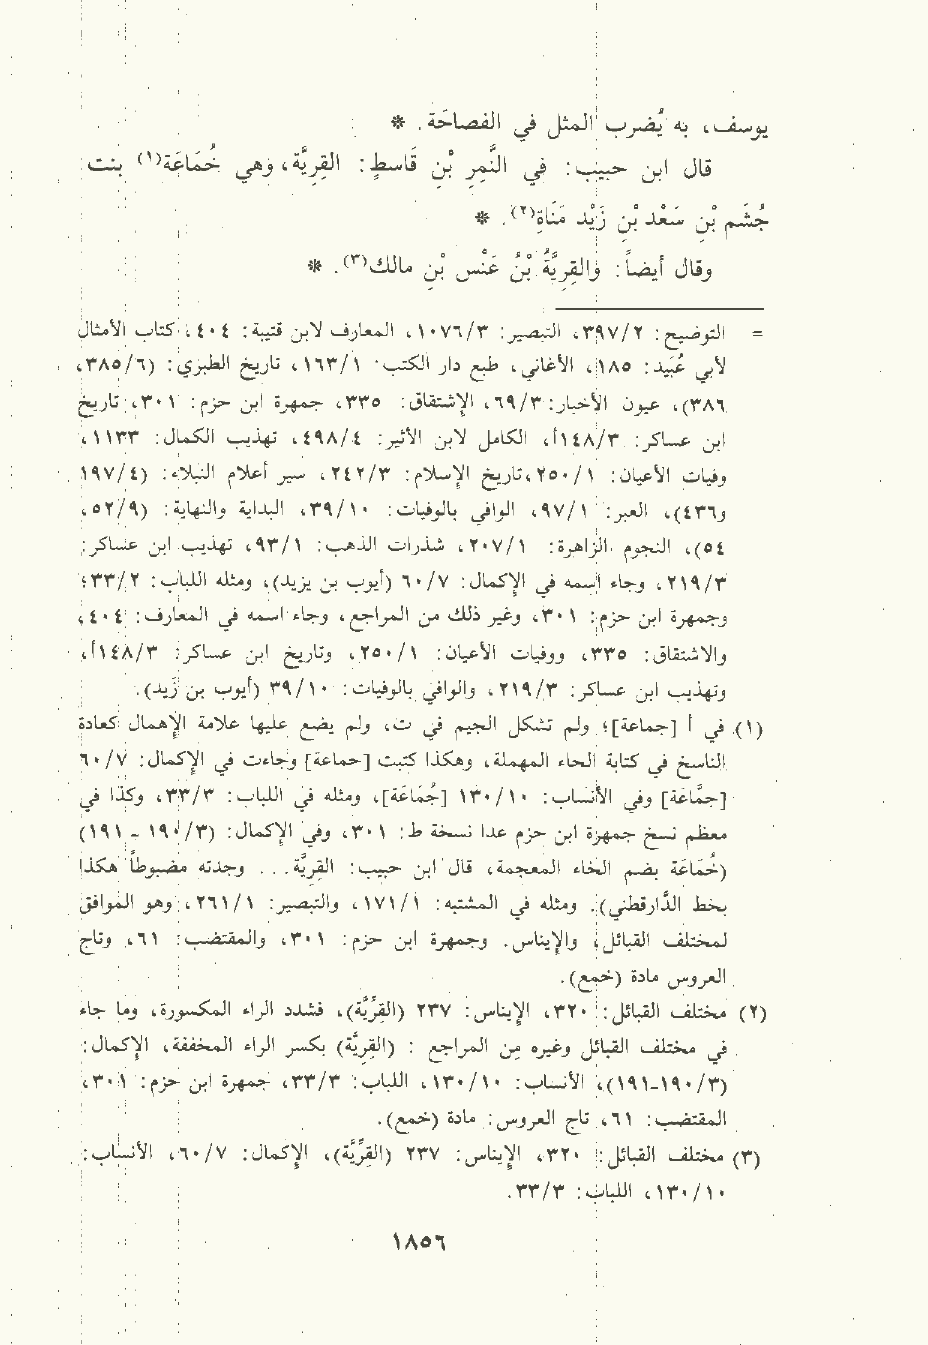 يوسف، به يُضرب المثل في الفصاحَة. *
قال ابن حبيب: في النَّمِر بْنِ قَاسطٍ: القِرِيَّة، وهي خُمَاعَة(١) بنت
جُشَم بْنِ سَعْد بْنِ زَيْد مَنَاةِ(٢). *
وقال أيضاً: والقِرِيَّةُ بْنُ عَنْس بْنِ مالك(٣). *
= التوضيح: ٣٩٧/٢، التبصير: ١٠٧٦/٣، المعارف لابن قتيبة: ٤٠٤، كتاب الأمثال
لأبي عُبَيد: ١٨٥، الأغاني، طبع دار الكتب ١٦٣/١، تاريخ الطبري: (٣٨٥/٦،
٣٨٦)، عيون الأخبار: ٦٩/٣، الإشتقاق: ٣٣٥، جمهرة ابن حزم: ٣٠١، تاريخ
ابن عساكر: ١٤٨/٣أ، الكامل لابن الأثير: ٤٩٨/٤، تهذيب الكمال: ١١٣٣،
وفيات الأعيان: ٢٥٠/١، تاريخ الإسلام: ٢٤٢/٣، سير أعلام النبلاء: (١٩٧/٤
و٤٣٦)، العبر: ٩٧/١، الوافي بالوفيات: ٣٩/١٠، البداية والنهاية: (٥٢/٩،
٥٤)، النجوم الزاهرة: ٢٠٧/١، شذرات الذهب: ٩٣/١، تهذيب ابن عساكر:
٢١٩/٣، وجاء اسمه في الإكمال: ٦٠/٧ (أيوب بن يزيد)، ومثله اللباب: ٣٣/٢؛
وجمهرة ابن حزم: ٣٠١، وغير ذلك من المراجع، وجاء اسمه في المعارف: ٤٠٤،
والاشتقاق: ٣٣٥، ووفيات الأعيان: ٢٥٠/١، وتاريخ ابن عساكر: ١٤٨/٣أ،
وتهذيب ابن عساكر: ٢١٩/٣، والوافي بالوفيات: ٣٩/١٠ (أيوب بن زَيد).
(١) في أ [جماعة]؛ ولم تشكل الجيم في ت، ولم يضع عليها علامة الإهمال كعادة
الناسخ في كتابة الحاء المهملة، وهكذا كتبت [حماعة] وجاءت في الإكمال: ٦٠/٧
[جمَّاعة] وفي الأنساب: ١٣٠/١٠ [جُمَاعَة]، ومثله في اللباب: ٣٣/٣، وكذا في
معظم نسخ جمهرة ابن حزم عدا نسخة ط: ٣٠١، وفي الإكمال: (١٩٠/٣ - ١٩١)
(خُمَاعَة بضم الخاء المعجمة، قال ابن حبيب: القِرِيَّة... وجدته مضبوطاً هكذا
بخط الدَّارقطني). ومثله في المشتبه: ١٧١/١، والتبصير: ٢٦١/١، وهو الموافق
لمختلف القبائل، والإيناس. وجمهرة ابن حزم: ٣٠١، والمقتضب: ٦١، وتاج
العروس مادة (خمع).
(٢) مختلف القبائل: ٣٢٠، الإيناس: ٢٣٧ (القِرِّيَّة)، فشدد الراء المكسورة، وما جاء
في مختلف القبائل وغيره مِن المراجع : (القِرِيَّة) بكسر الراء المخففة، الإكمال:
(١٩٠/٣-١٩١)، الأنساب: ١٣٠/١٠، اللباب: ٣٣/٣، جمهرة ابن حزم: ٣٠١،
المقتضب: ٦١، تاج العروس: مادة (خمع).
(٣) مختلف القبائل: ٣٢٠، الإيناس: ٢٣٧ (القِرِّيَّة)، الإكمال: ٦٠/٧، الأنساب:
١٣٠/١٠، اللباب: ٣٣/٣.
١٨٥٦